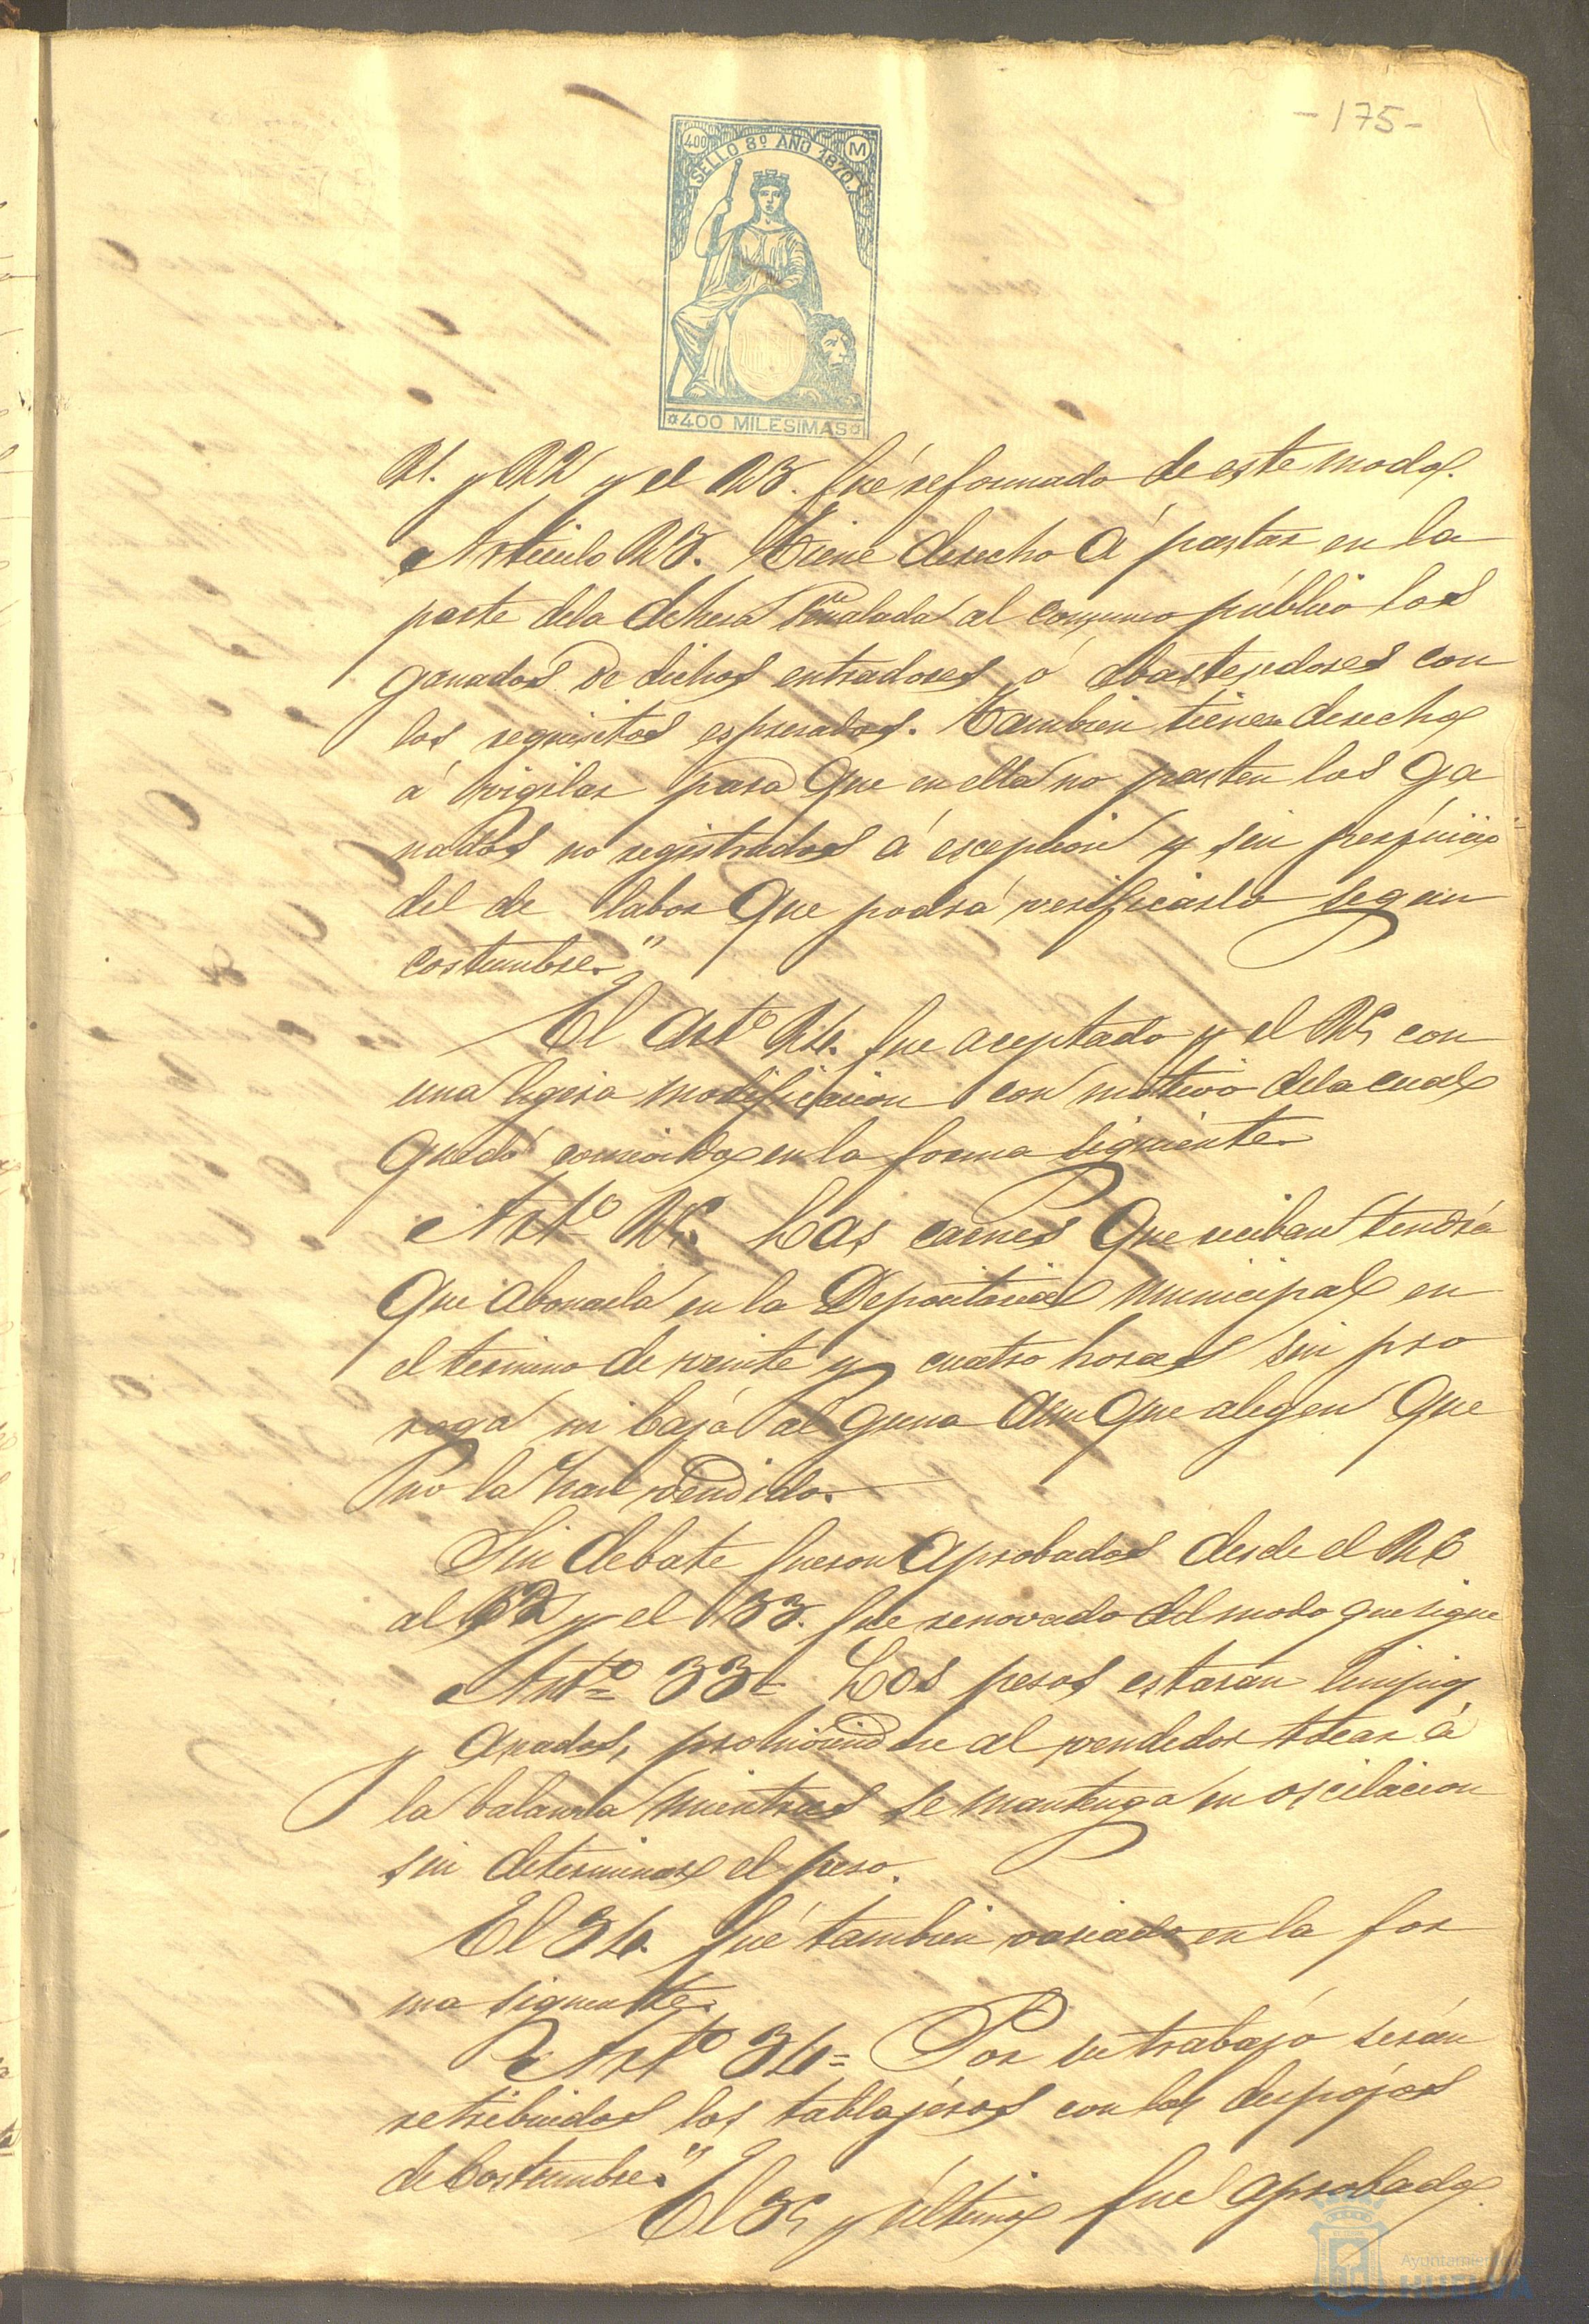 -175-
400 M
SELLO 8º AÑO 1870.
400 MILESIMAS
21. y 22 y el 23. fué reformado de este modo.
Articulo 23. Tiene derecho á pastar en la
parte dela dehesa señalada al comun público los
ganados de dichos entradores ó abastejedores con
los requisitos espresados. Tambien tienen derecho
á vigilar para que en ella no pasten los ga
nados no registrados á escepcion y sin perjuicio
del de labor que podrá verificarlo segun
costumbre."
El artº 24. fue aceptado y el 25 con
una ligera modificacion con motivo dela cual
quedó concebido en la forma siguiente.
Artº 25. Las carnes que reciban tendrá
que abonarla en la Depositaria municipal en
el termino de veinte y cuatro horas sin pro
roga ni baja alguna aunque alegen que
no la han vendido.
Sin debate fueron aprobados desde el 26
al 32 y el 33. fue renovado del modo que sigue
Artº 33= Los pesos estaran limpios
y arados, prohiviendose al vendedor tocar á
la balanza mientras se mantenga en oscilacion
sin determinar el peso.
El 34. fué tambien variado en la for
ma siguiente.
Artº 34= Por su trabajo serán
retribuidos los tablajeros con los despojos
de costumbre."
El 35 y último fue aprobado.
Ayuntamiento
HUELVA